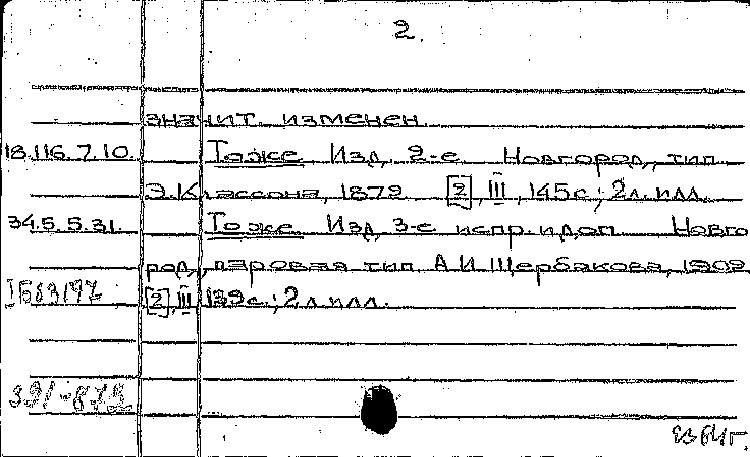 2.
значит. изменен.
18.116.7.10. То же. Изд. 2-е. Новгород, тип.
Э. Классона, 1872. [2], III, 145 с.; 2 л. илл.
34.5.5.31. То же. Изд. 3-е испр. и доп. Новго
род, паровая тип. А.И. Щербакова, 1902
[2], III 139 с.; 2 л. илл.